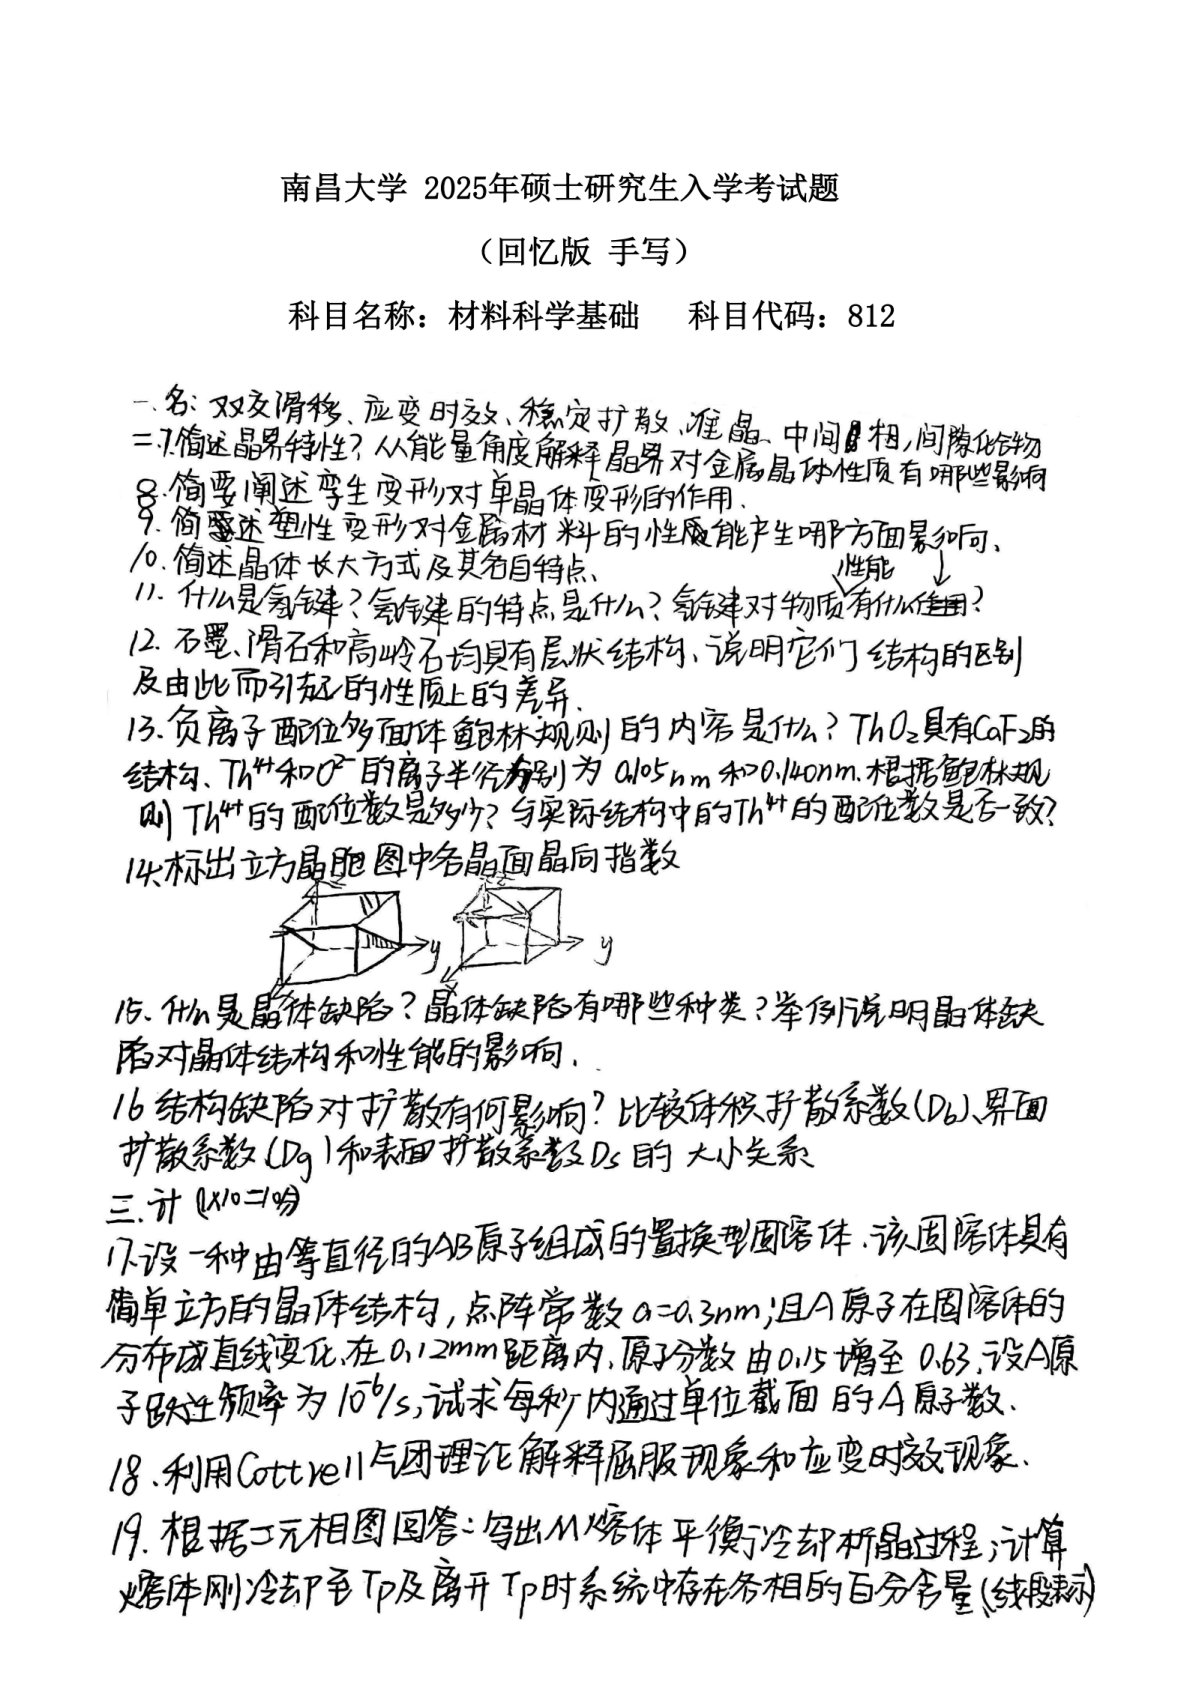 南昌大学 2025年硕士研究生入学考试题
（回忆版 手写）
科目名称：材料科学基础 科目代码：812
一、名：双交滑移、应变时效、稳定扩散、准晶、中间相，间隙化合物
二、7.简述晶界特性？从能量角度解释晶界对金属晶体性质有哪些影响
8.简要阐述孪生变形对单晶体变形的作用．
9.简要述塑性变形对金属材料的性能产生哪方面影响、
10.简述晶体长大方式及其各自特点、
性能
11.什么是氢键？氢键的特点是什么？氢键对物质有什么作用？
12.石墨、滑石和高岭石均具有层状结构、说明它们结构的区别
及由此而引起的性质上的差异．
13.负离子配位多面体鲍林规则的内容是什么？ThO₂具有CaF₂的
结构、Th⁴⁺和O²⁻的离子半径分别为0.105nm和0.140nm.根据鲍林规
则Th⁴⁺的配位数是多少？与实际结构中的Th⁴⁺的配位数是否一致？
14.标出立方晶胞图中各晶面晶向指数
z z
y y
x x
15.什么是晶体缺陷？晶体缺陷有哪些种类？举例说明晶体缺
陷对晶体结构和性能的影响．
16 结构缺陷对扩散有何影响？比较体积扩散系数(Db)、界面
扩散系数(Dg)和表面扩散系数Ds的大小关系
三、计 (1×10=10分)
17.设一种由等直径的AB原子组成的置换型固溶体．该固溶体具有
简单立方的晶体结构，点阵常数a=0.3nm；且A原子在固溶体的
分布成直线变化、在0.12mm距离内、原子分数由0.15增至0.63．设A原
子跃迁频率为10⁻⁶/s，试求每秒内通过单位截面的A原子数．
18、利用Cottrell气团理论解释屈服现象和应变时效现象．
19.根据二元相图回答：写出M熔体平衡冷却析晶过程；计算
熔体刚冷却至Tp及离开Tp时系统中存在各相的百分含量(线段表示)